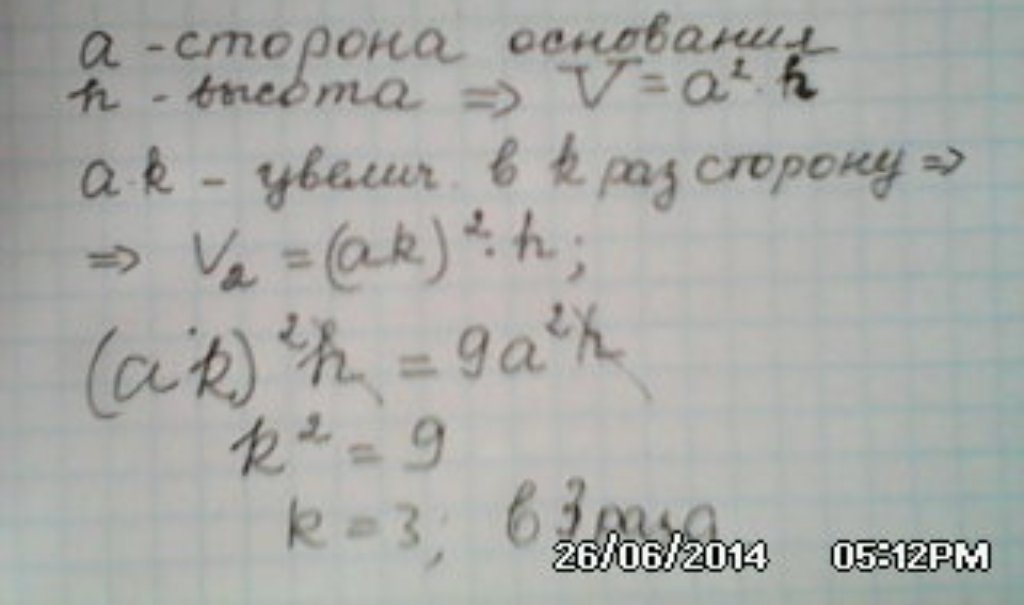 a - сторона основания
h - высота => V = a² · h
a·k - увелич. в k раз сторону =>
=> V₂ = (ak)² · h ;
(a·k)² h = 9a² h
k² = 9
k = 3; в 3 раза
26/06/2014 05:12PM